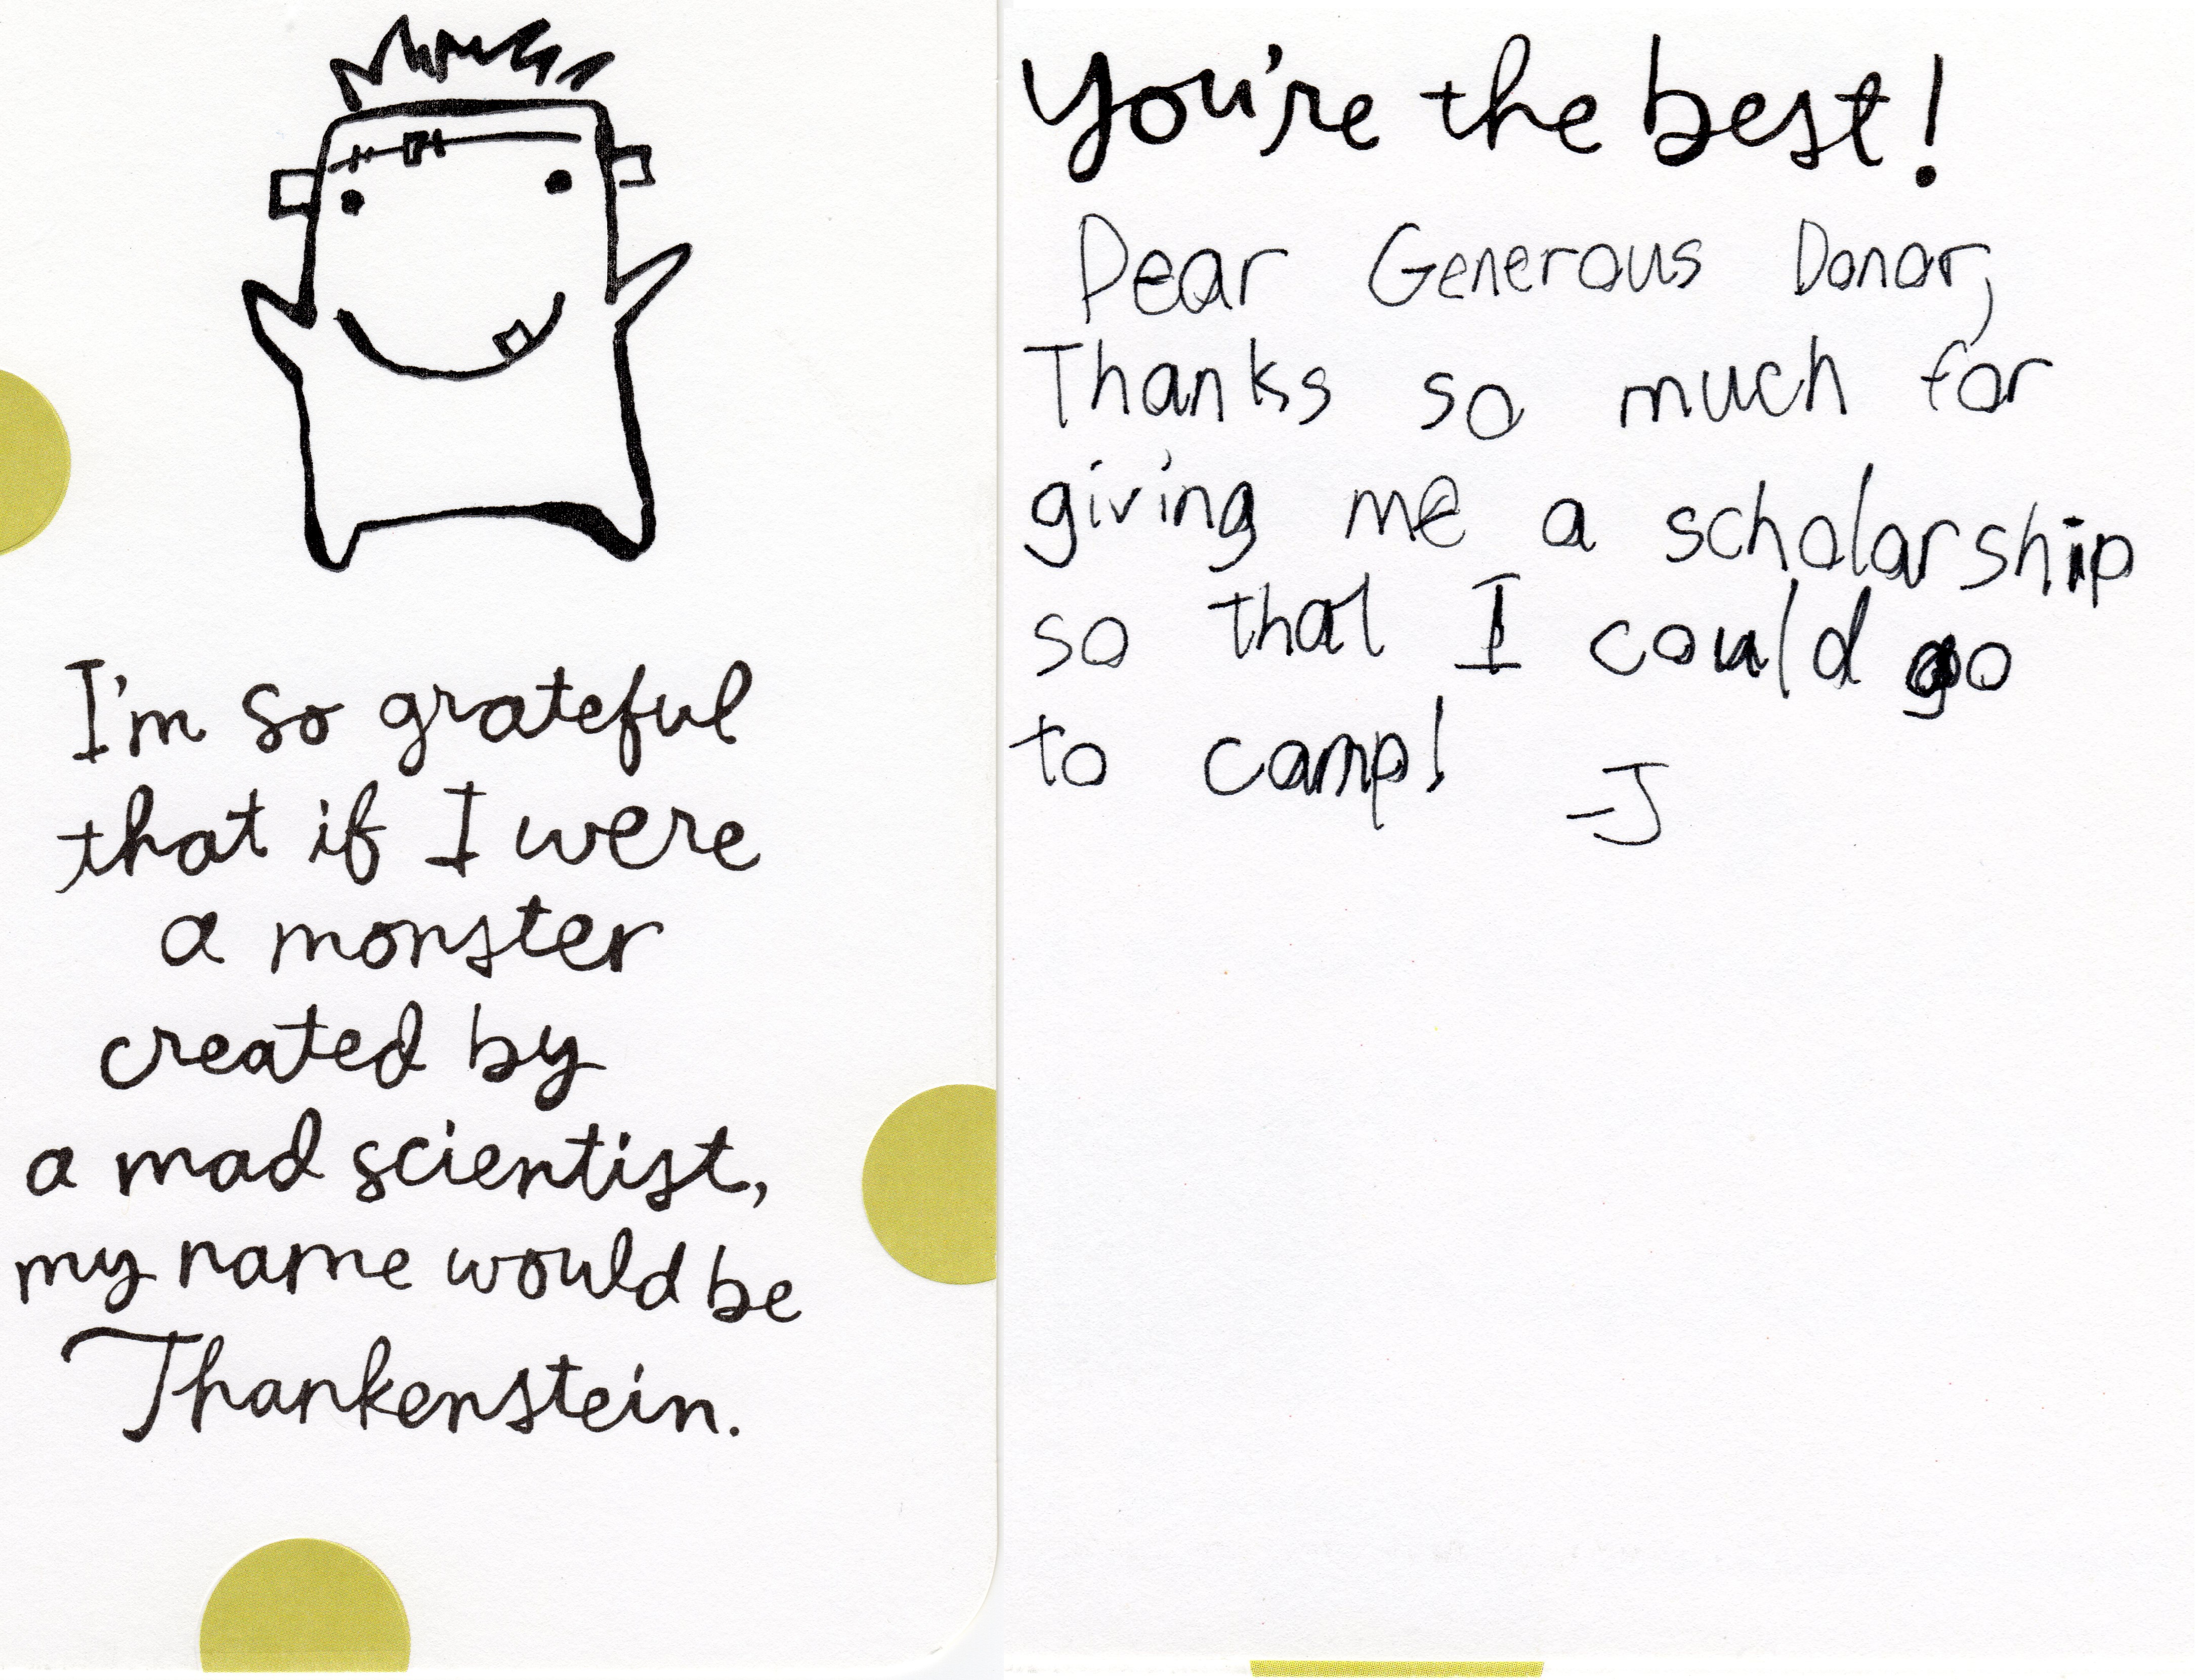 I'm so grateful
that if I were
a monster
created by
a mad scientist,
my name would be
Thankenstein.
You're the best!
Dear Generous Donor,
Thanks so much for
giving me a scholarship
so that I could go
to camp! -J